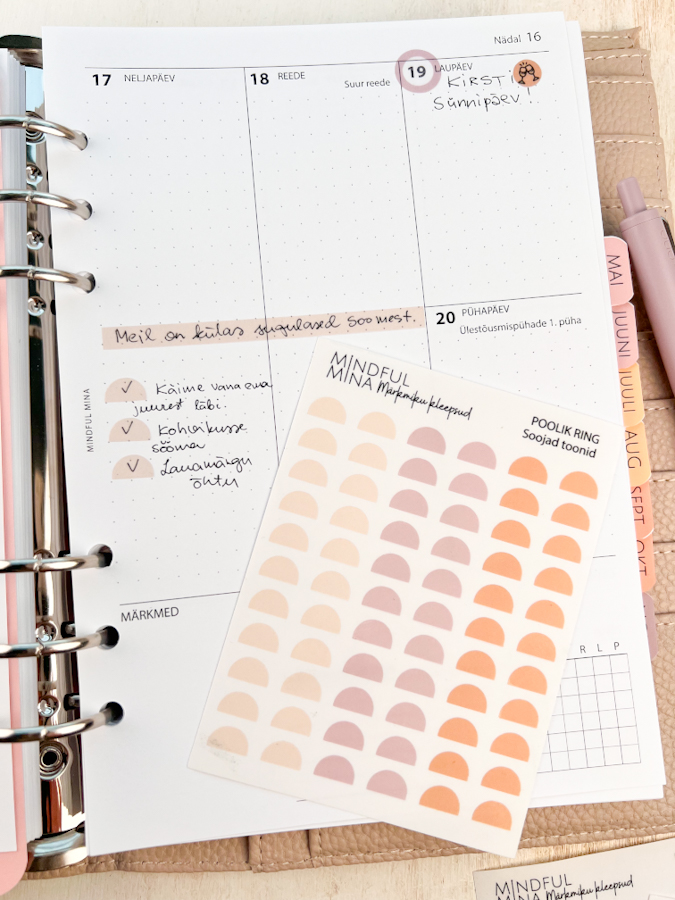 Nädal 16
17 NELJAPÄEV
18 REEDE
Suur reede
19 LAUPÄEV
KIRSTI
Sünnipäev!
Meil on külas sugulased Soomest.
20 PÜHAPÄEV
Ülestõusmispühade 1. püha
Käime vana ema
juurest läbi.
Kohvikusse
sööma
Lauamängu
õhtu
MINDFUL MINA
MÄRKMED
MINDFUL
MINA Märkmiku kleepsud
POOLIK RING
Soojad toonid
MAI
JUUNI
JUULI
AUG
SEPT
OKT
R L P
MINDFUL
MINA Märkmiku kleepsud